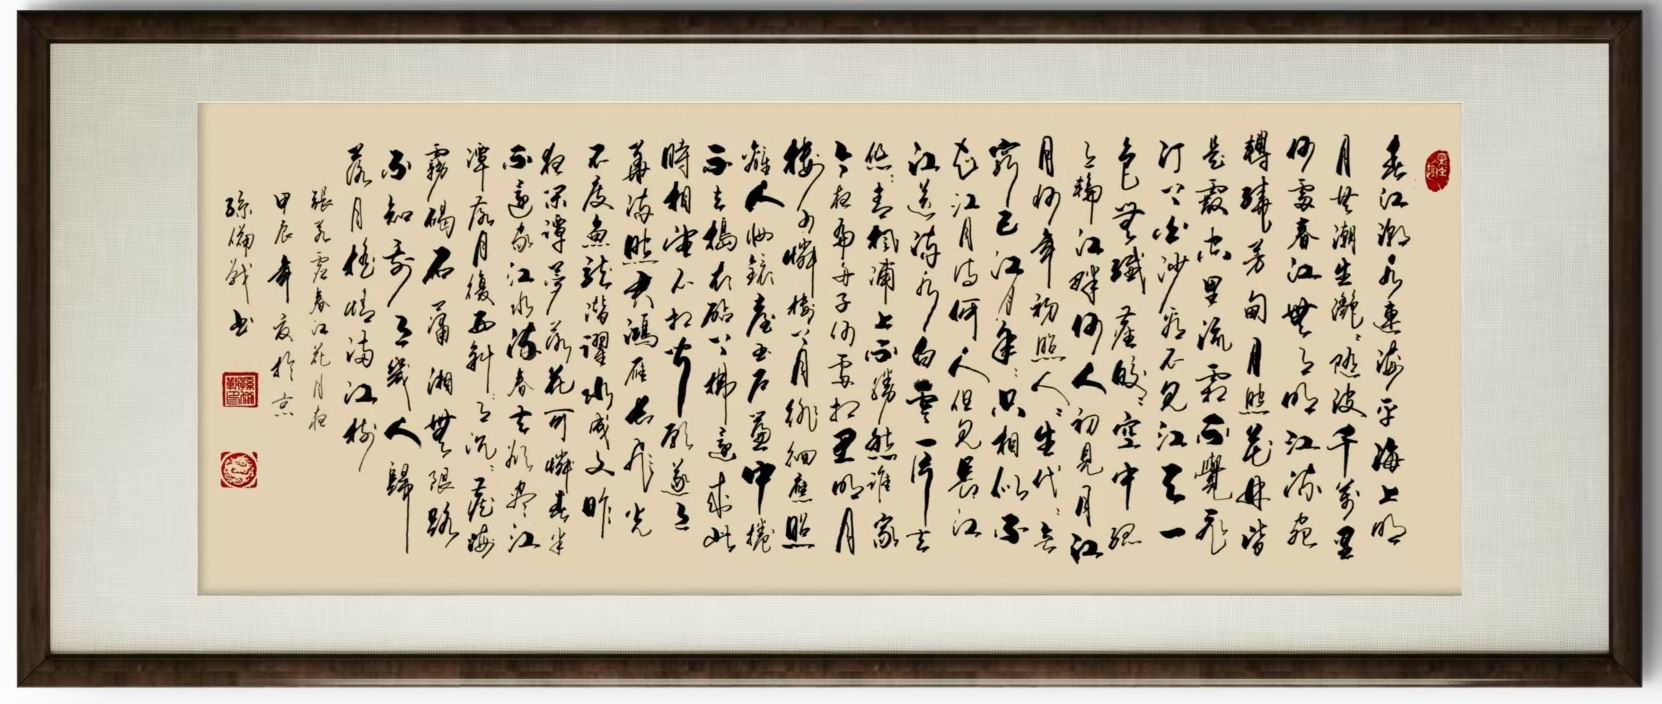 春江潮水連海平海上明
月共潮生灔〻隨波千萬里
何處春江無月明江流宛
轉繞芳甸月照花林皆
是霰空里流霜不覺飛
汀上白沙看不見江天一
色無纖塵皎〻空中孤
月輪江畔何人初見月江
月何年初照人〻生代〻無
窮已江月年〻只相似不
知江月待何人但見長江
江送流水白雲一片去
悠〻青楓浦上不勝愁誰家
今夜扁舟子何處相思明月
樓可憐樓上月徘徊應照
離人妝鏡臺玉戶簾中捲
不去搗衣砧上拂還來此
時相望不相聞願逐月
華流照君鴻雁長飛光
不度魚龍潛躍水成文昨
夜閑潭夢落花可憐春半
不還家江水流春去欲盡江
潭落月復西斜〻月沉〻藏海
霧碣石瀟湘無限路
不知乘月幾人歸
落月搖情滿江樹
張若虛春江花月夜
甲辰年夏於京
孫備戰書